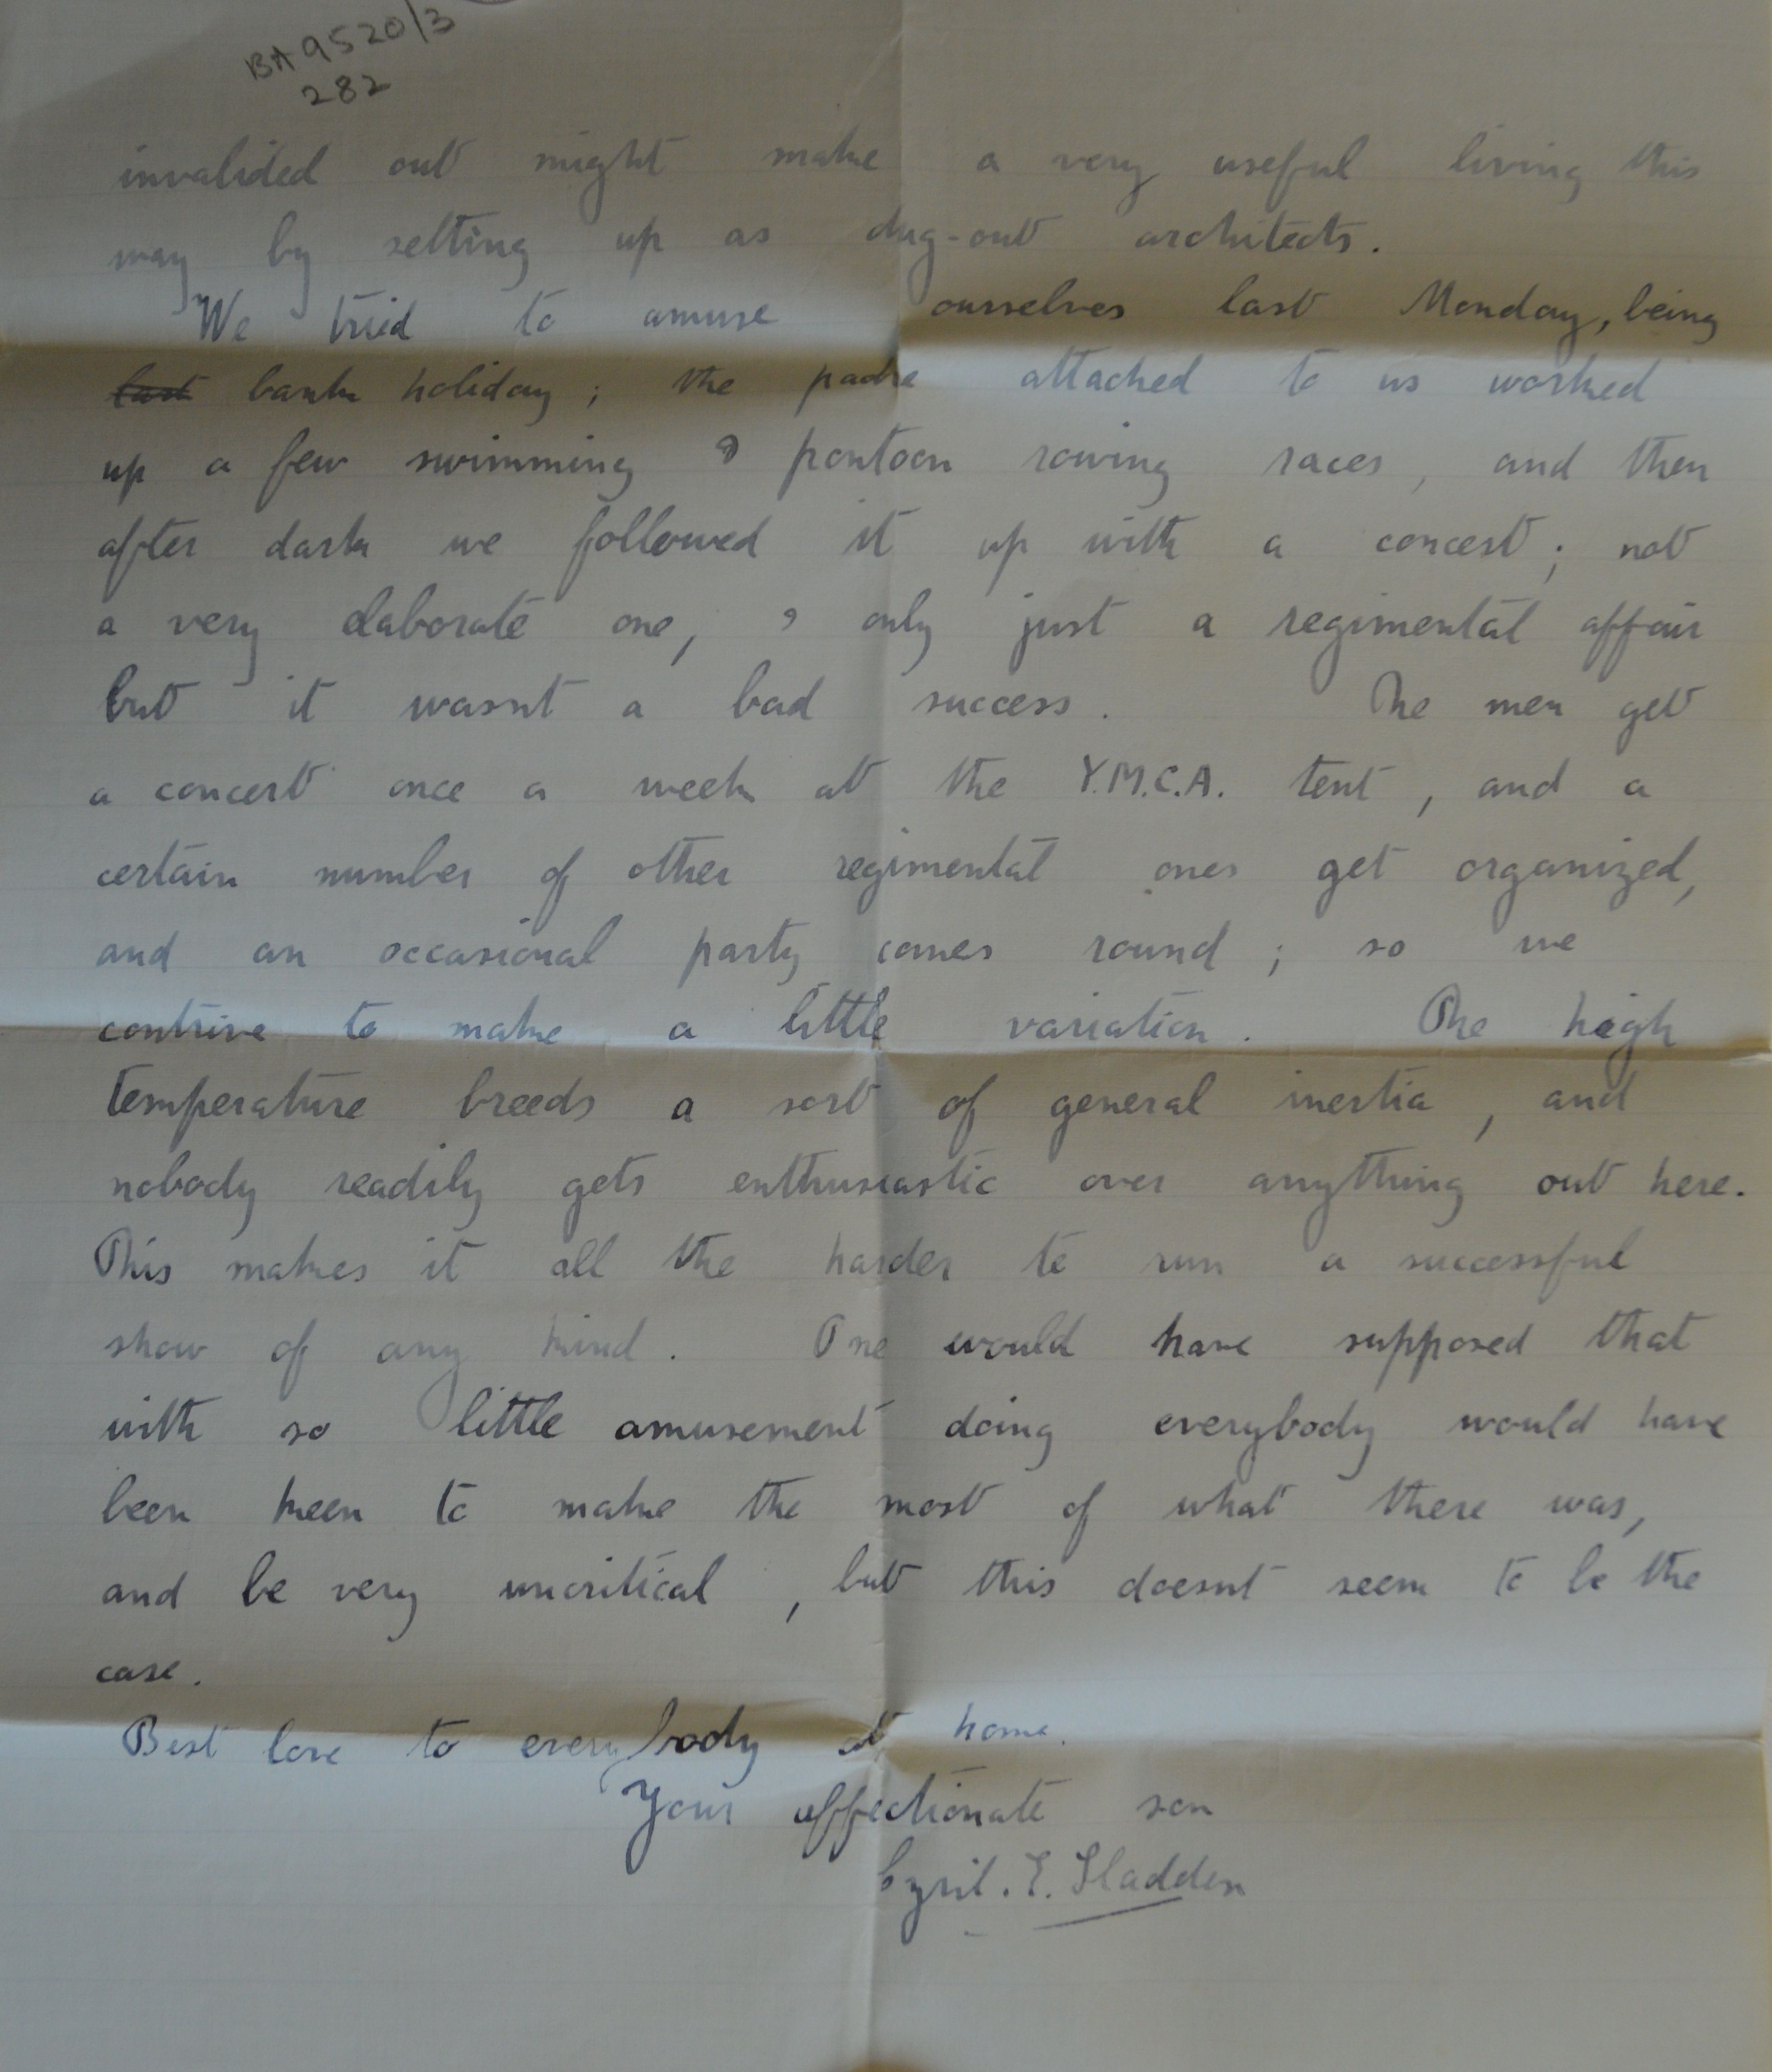 BA 9520/3
282
invalided out might make a very useful living this
may by setting up as dug-out architects.
We tried to amuse ourselves last Monday, being
last bank holiday; the padre attached to us worked
up a few swimming & pontoon rowing races, and then
after dark we followed it up with a concert; not
a very elaborate one, & only just a regimental affair
but it wasnt a bad success. The men get
a concert once a week at the Y.M.C.A. tent, and a
certain number of other regimental ones get organized,
and an occasional party comes round; so we
contrive to make a little variation. The high
temperature breeds a sort of general inertia, and
nobody readily gets enthusiastic over anything out here.
This makes it all the harder to run a successful
show of any kind. One would have supposed that
with so little amusement doing everybody would have
been keen to make the most of what there was,
and be very uncritical, but this doesnt seem to be the
case.
Best love to everybody at home.
Your affectionate son
Cyril. E. Sladden